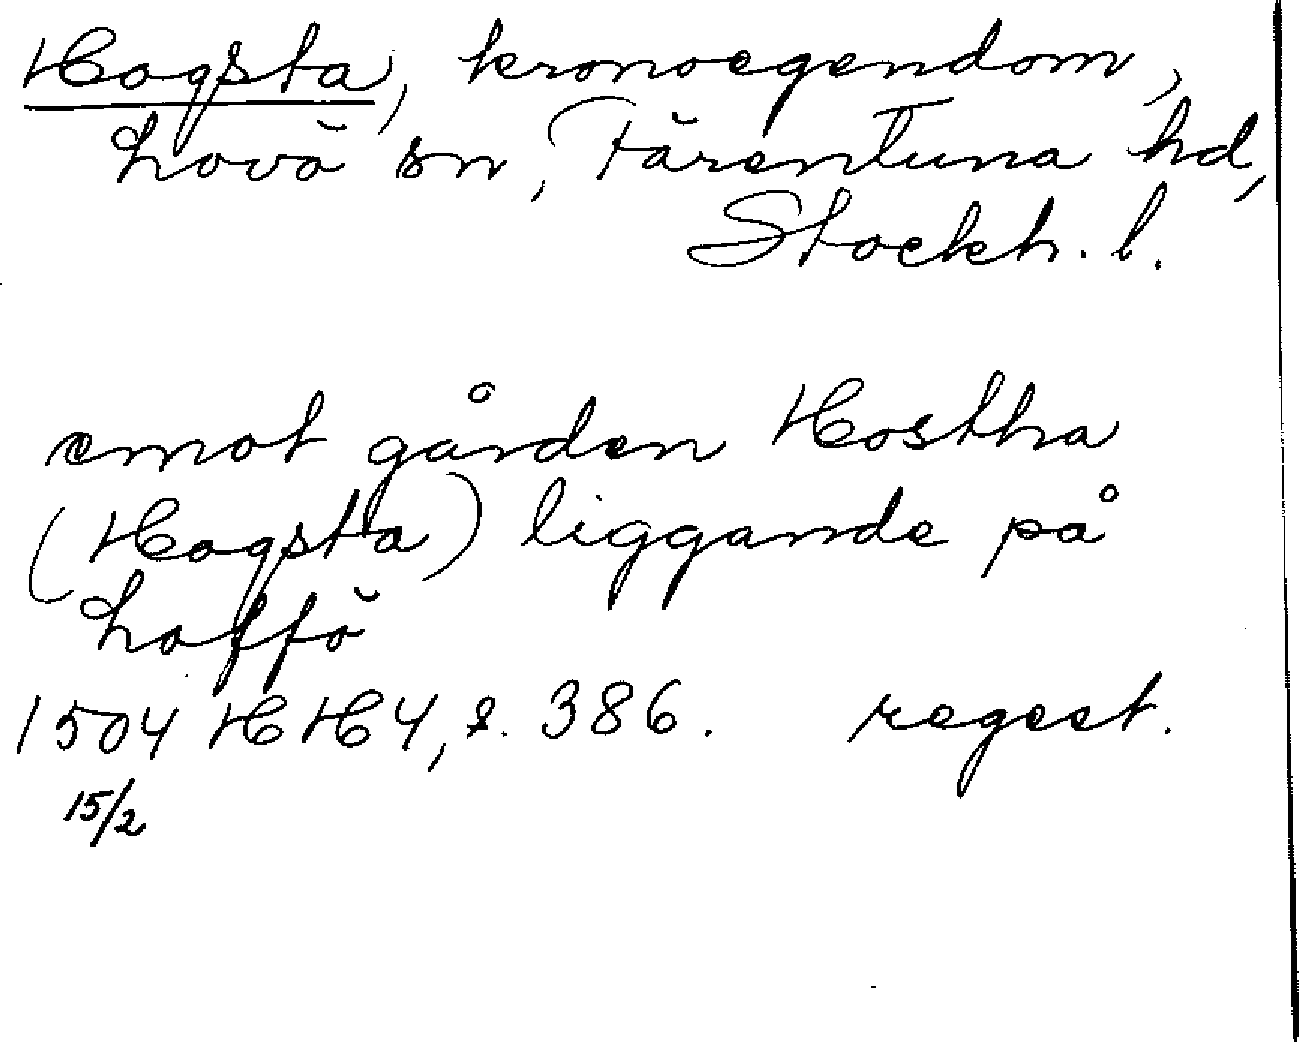 Hogsta, kronoegendom,
Lovö sn, Färentuna hd,
Stockh. l.
emot gården Hostha
(Hogsta) liggande på
Loffö
1504 HH 4, s. 386. regest.
15/2